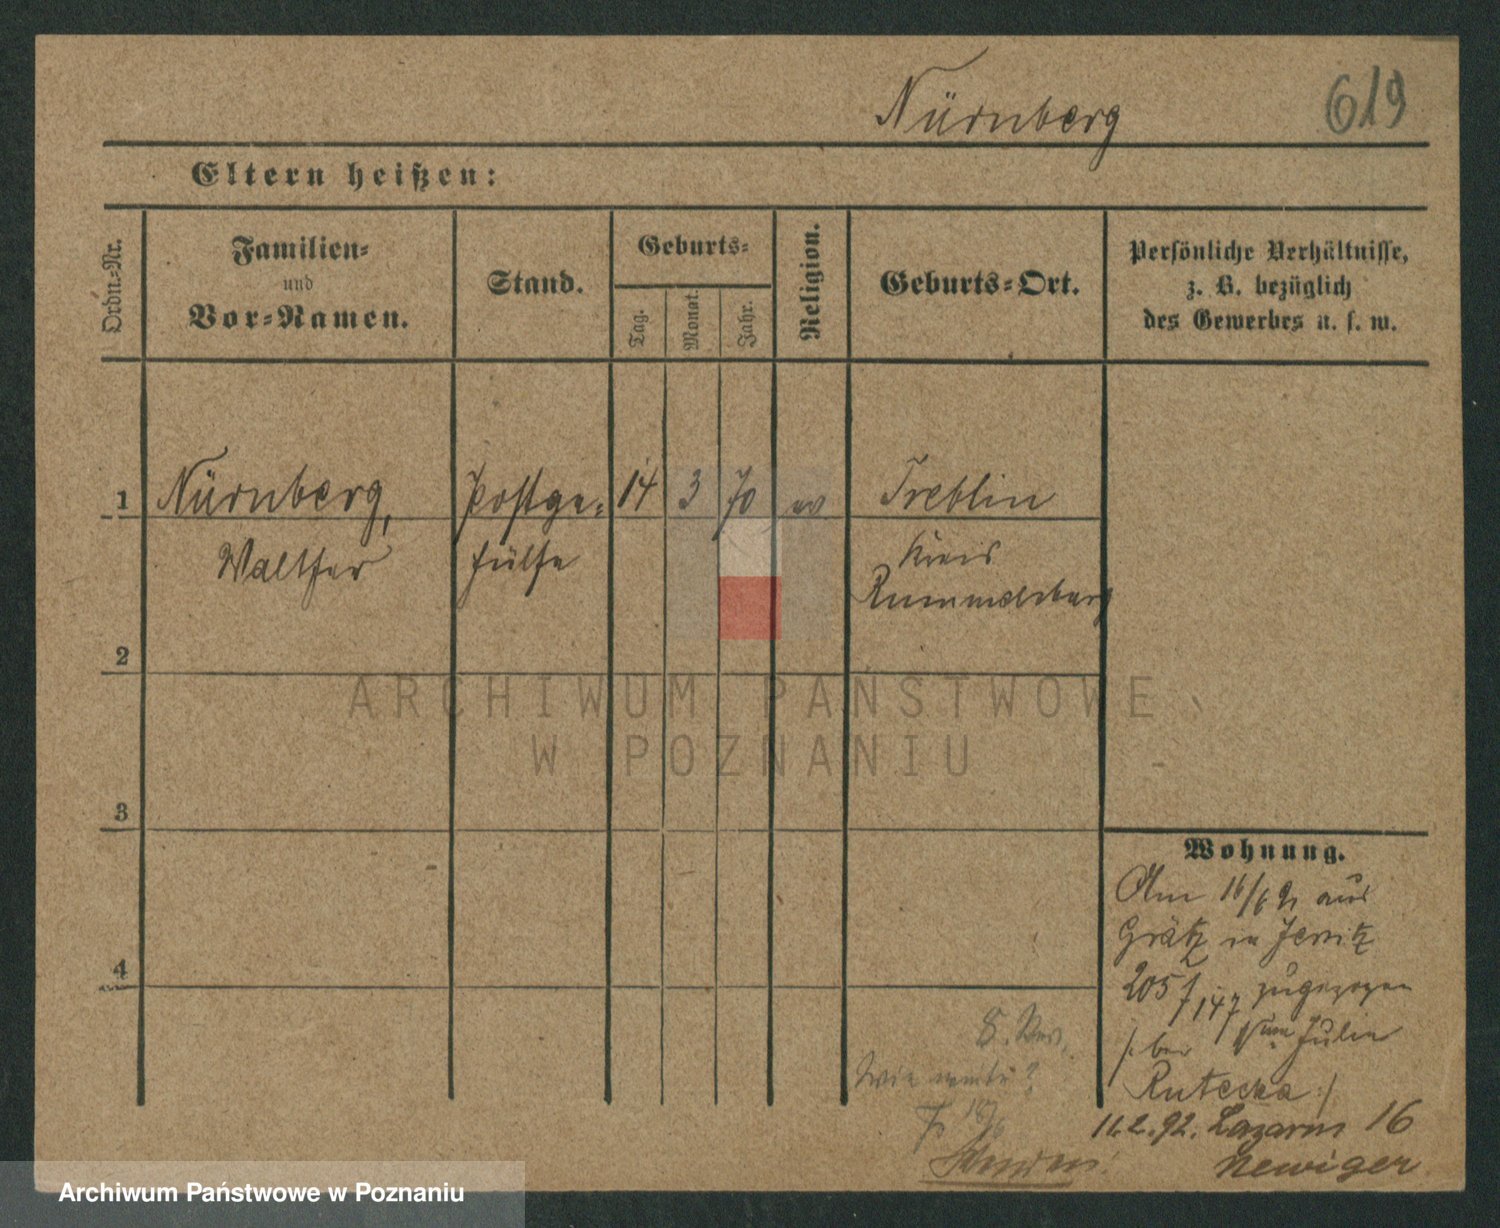 Nürnberg
619
Eltern heißen:
Ordn.-Nr.
Familien-
und
Vor-Namen.
Stand.
Geburts-
Tag.
Monat.
Jahr.
Religion.
Geburts-Ort.
Persönliche Verhältnisse,
z. B. bezüglich
des Gewerbes u. s. w.
1 Nürnberg, Postge- 14 3 70 ev Treblin
Walther hülfe Kreis
Rummelsburg
2
ARCHIWUM PAŃSTWOWE
W POZNANIU
3
Wohnung.
Am 16/6 91 aus
Grätz in Jersitz
4
205 f, 147 zugezogen
/: bei Julie
Rutecka :/
11.2.92. Lazarus 16
Newiger
Archiwum Państwowe w Poznaniu